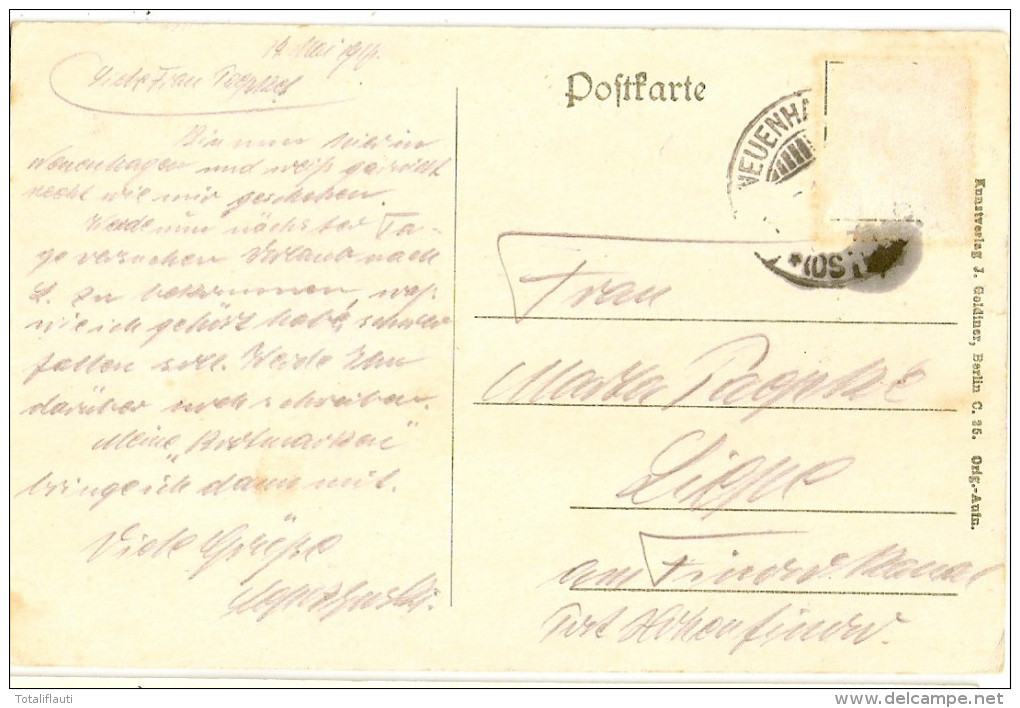 19. Mai 1917.
Liebe Frau Paepke
Bin nun hier in
Neuenhagen und weiß gar nicht
recht wie mir geschehen.
Werde nun nächster Ta-
ge versuchen Urlaub nach
L. zu bekommen, was
wie ich gehört habe, schwer
fallen soll. Werde Ihnen
darüber noch schreiben.
Meine „Brotmarken"
bringe ich dann mit.
Viele Grüße
Postkarte
NEUENHA
(OST
Frau
Marta Paepke
Liepe
am Finow-Kanal
Post Hohenfinow.
Kunstverlag J. Goldiner, Berlin C. 25. Orig.-Aufn.
Totaliflauti
www.delcampe.net